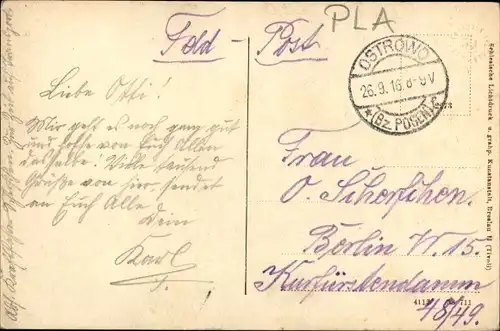 PLA
Feld-Post
OSTROWO
26.9.16.8-9V
*(Bz. POSEN) c
Liebe Otti!
Mir geht es noch ganz gut
und hoffe von Euch Allen
dasselbe. Viele tausend
Grüße von hier, sendet
an Euch Alle
Dein
Karl
Frau
O. Scherfchen.
Berlin W. 15.
Kurfürstendamm
48/49.
Schlesische Lichtdruck- u. graph. Kunstanstalt, Breslau II (Tivoli)